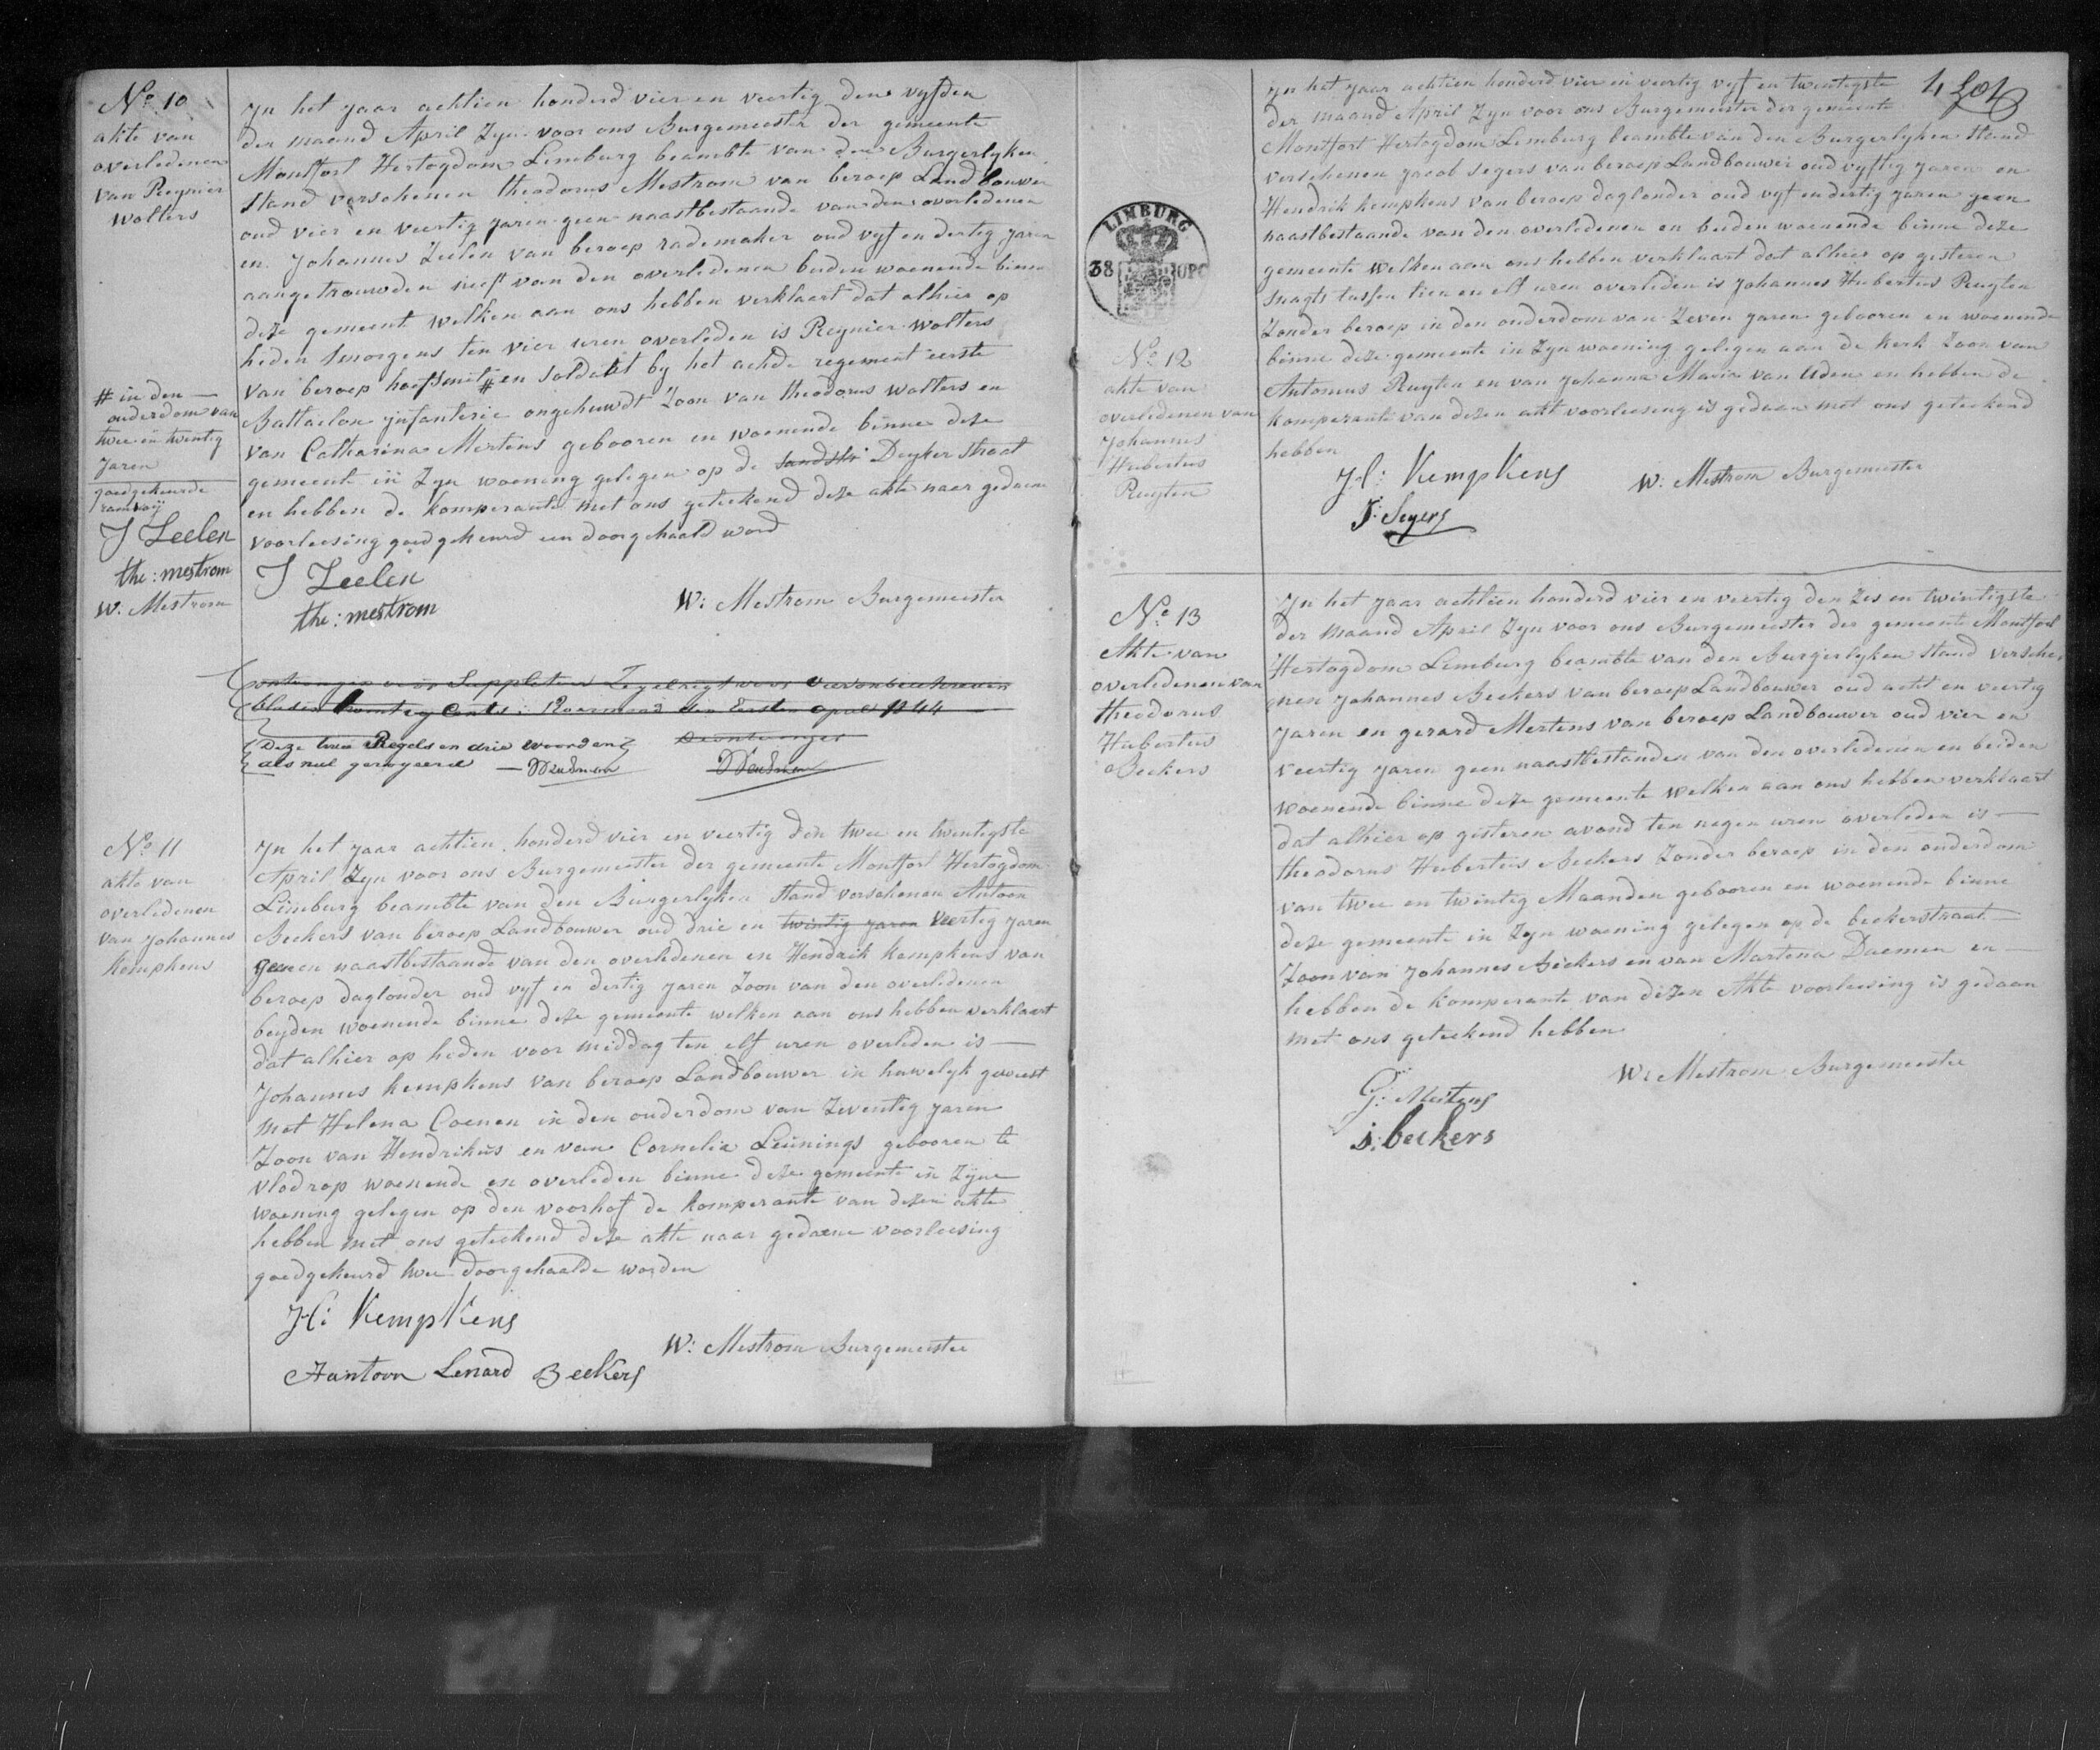 No 10
akte van
overledenen
van Reynier
Wolters
# in den
ouderdom van
twee en twintig
Jaren
goedgekeurde
J Zeelen
the: mestrom
W: Mestrom
Jn het Jaar achtien honderd vier en veertig den vyfden
der maand April Zyn voor ons Burgemeester der gemeente
Montfort Hertogdom Limburg beambte van den Burgerlyken
Stand verschenen theodorus Mestrom van beroep Landbouwer
oud vier en veertig jaren geen naastbestaande van den overledenen
en Johannes Zeelen van beroep rademaker oud vyf en dertig Jaren
aangetrouwden neef van den overledenen beiden woenende binne
deze gemeente welken aan ons hebben verklaert dat alhier op
heden smorgens ten vier uren overleden is Reynier Wolters
van beroep hoefsmit # en soldaat by het achde regement eerste
Battaelon jnfanterie ongehuwdt Zoon van theodorus Wolters en
van Catharina Mertens gebooren en woenende binne deze
gemeente in Zyn woening gelegen op de Deyker straat
en hebben de komperante met ons geteekend deze akte naer gedaene
voorleesing goedgekeurd een doorgehaald word
J Zeelen
the: mestrom
W: Mestrom Burgemeester
Ontvangen voor Suppletoir Zegelregt voor
blader twintig Cents. Roermond den Eersten April 1844
Deze twee Regels en drie woorden
als nul geroyeerd
No 11
akte van
overledenen
van Johannes
Kemphens
Jn het Jaar achtien honderd vier en veertig den twee en twintigste
April Zyn voor ons Burgemeester der gemeente Montfort Hertogdom
Limburg beambte van den Burgerlyken Stand verschenen Antoon
Beekers van beroep Landbouwer oud drie en twintig jaren veertig jaren
geenen naastbestaande van den overledenen en Hendrik Kemphens van
beroep daglonder oud vyf en dertig jaren Zoon van den overledenen
beyden woenende binne deze gemeente welken aan ons hebben verklaert
dat alhier op heden voor middag ten elf uren overleden is
Johannes Kemphens van beroep Landbouwer in huwelyk geweest
met Helena Coenen in den ouderdom van Zeventig jaren
Zoon van Hendrikus en van Cornelia Leunings gebooren te
Vlodrop woenende en overleden binne deze gemeente in Zyne
woening gelegen op den voorhof de komperante van dezen akte
hebben met ons geteekend deze akte naar gedaene voorleesing
goedgekeurd twee doorgehaalde worden
H: Kempkens
Aantoon Lenard Beekers
W: Mestrom Burgemeester
LIMBURG
38 OPC
No 12
akte van
overledenen van
Johannes
Hubertus
Ruyten
Jn het jaar achtien honderd vier en veertig vyf en twentigste
der maand April Zyn voor ons Burgemeester der gemeente
Montfort Hertogdom Limburg beambte van den Burgerlyken Stand
verschenen Jacob Segers van beroep Landbouwer oud vyftig jaren en
Hendrik kemphens van beroep daglonder oud vyf en dertig jaren geen
naastbestaande van den overledenen en beiden woenende binne deze
gemeente welken aan ons hebben verklaart dat alhier op gisteren
snagts tussen tien en elf uren overleden is Johannes Hubertus Ruyten
Zonder beroep in den ouderdom van Zeven jaren gebooren en woenende
binne deze gemeente in Zyn woening gelegen aan de kerk Zoon van
Antonius Ruyten en van Johanna Maria van Uden en hebben de
komperante van dezen akt voorleesing is gedaan met ons geteekend
hebben
H: Kempkens
J: Segers
W: Mestrom Burgemeester
No 13
Akte van
overledenen van
theodorus
Hubertus
Beekers
Jn het jaar achtien honderd vier en veertig den Zes en twintigste
der maand April Zyn voor ons Burgemeester der gemeente Montfort
Hertogdom Limburg beambte van den Burgerlyken stand versche
nen Johannes Beekers van beroep Landbouwer oud acht en veertig
jaren en gerard Mertens van beroep Landbouwer oud vier en
veertig jaren geen naastbestanden van den overledenen en beiden
woenende binne deze gemeente welken aan ons hebben verklaart
dat alhier op gisteren avond ten negen uren overleden is
theodorus Hubertus Beekers Zonder beroep in den ouderdom
van twee en twintig Maanden gebooren en woenende binne
deze gemeente in Zyn woening gelegen op de beekerstraat
Zoon van Johannes Beekers en van Martena Daemen en
hebben de komperante van dezen Akte voorleesing is gedaan
met ons geteekend hebben
W: Mestrom Burgemeester
G: Mertens
j: beekers